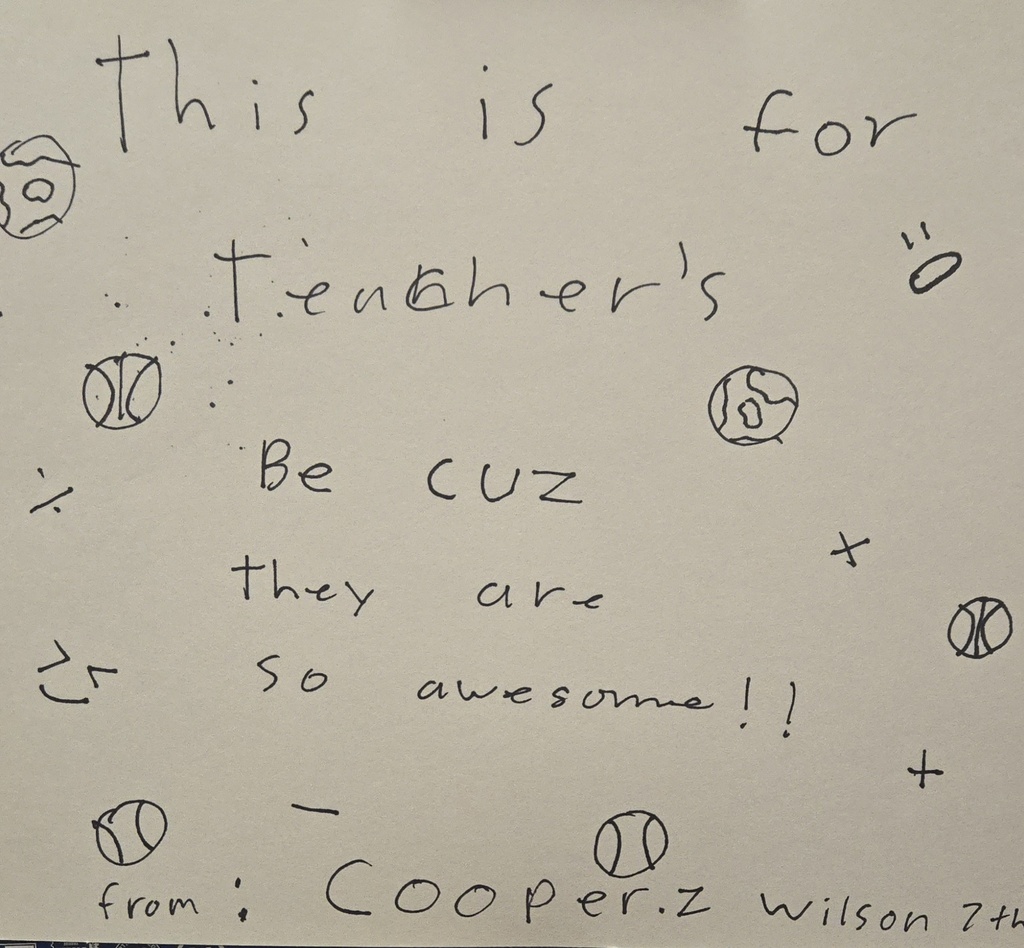 This is for
Teacher's
Be cuz
they are
so awesome!!
from: Cooper.z Wilson 7th